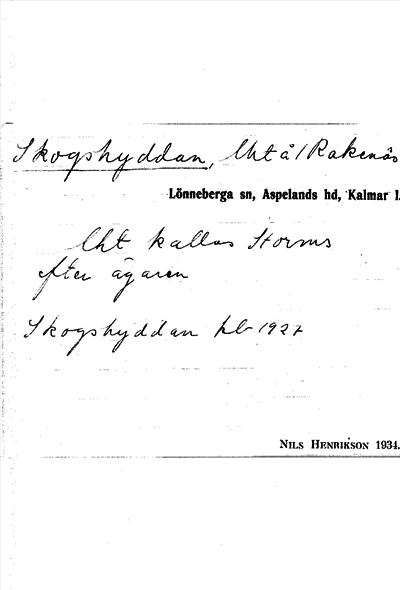 Skogshyddan, lht å 1 Rakenäs
Lönneberga sn, Aspelands hd, Kalmar l.
lht kallas Storms
efter ägaren
Skogshyddan hb 1927
NILS HENRIKSON 1934.